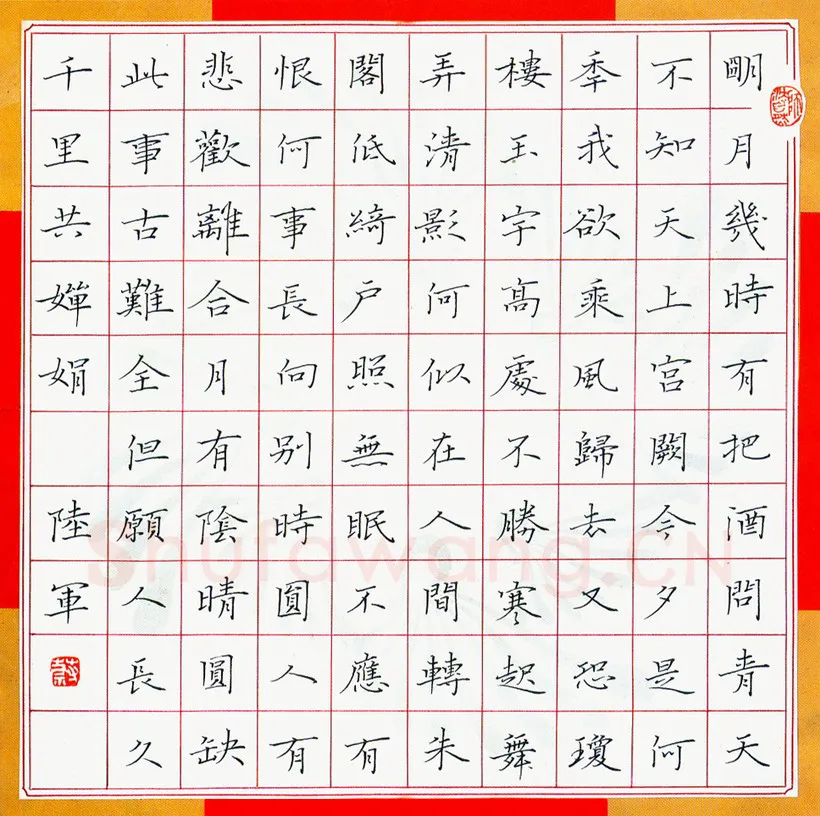 朙月幾時有把酒問青天
不知天上宮闕今夕是何
秊我欲乘風歸去又恐瓊
樓玉宇高處不勝寒起舞
弄清影何似在人間轉朱
閣低綺戶照無眠不應有
恨何事長向別時圓人有
悲歡離合月有陰晴圓缺
此事古難全但願人長久
千里共嬋娟 陸軍
Shufawang.CN